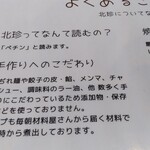 よくあるこ
北珍について
北珍ってなんて読むの？
「ペチン」と読みます。
手作りへのこだわり
だれ麺や餃子の皮・餡、メンマ、チャ
シュー、調味料のラー油、他 数多く手
りにこだわっているため添加物・保存
どを使っておりません。
プも毎朝材料屋さんから届く材料で
時から煮出しております。